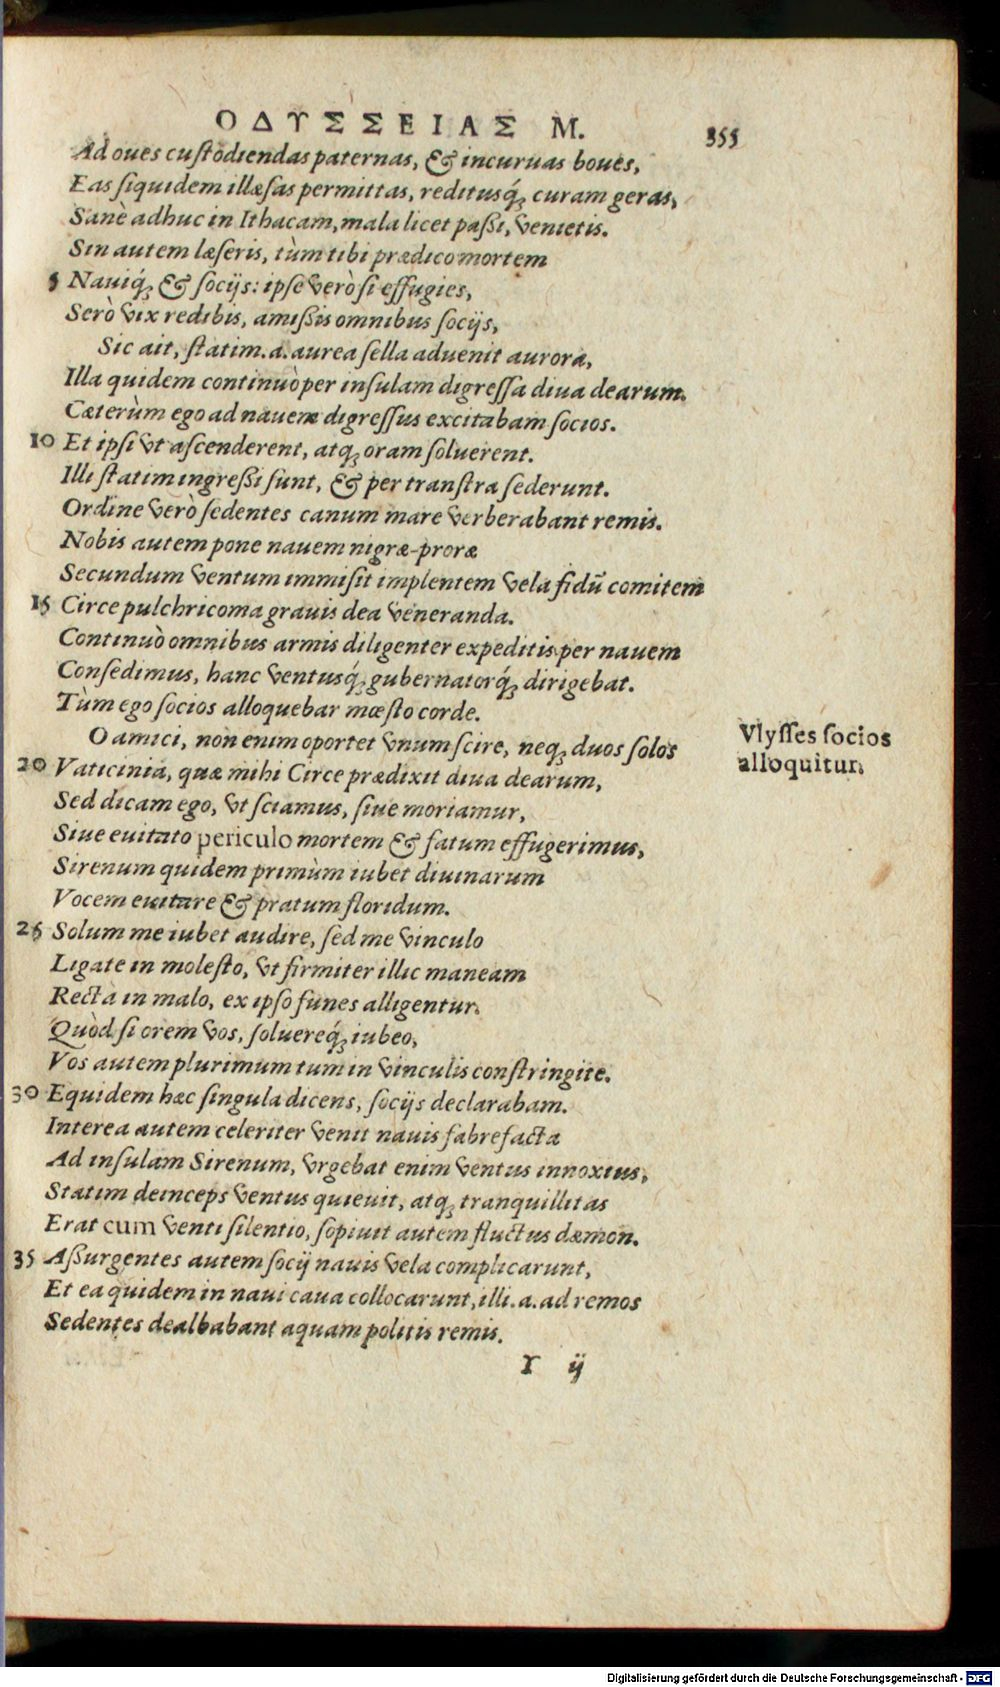 ΟΔΥΣΣΕΙΑΣ Μ. 355
Ad oues custodiendas paternas, & incuruas boues,
Eas siquidem illæsas permittas, reditusq́; curam geras,
Sanè adhuc in Ithacam, mala licet paßi, venietis.
Sin autem læseris, tùm tibi prædico mortem
5 Nauiq́; & socijs: ipse verò si effugies,
Serò vix redibis, amißis omnibus socijs,
Sic ait, statim.a. aurea sella aduenit aurora,
Illa quidem continuò per insulam digressa diua dearum.
Cæterùm ego ad nauem digressus excitabam socios.
10 Et ipsi vt ascenderent, atq; oram soluerent.
Illi statim ingreßi sunt, & per transtra sederunt.
Ordine verò sedentes canum mare verberabant remis.
Nobis autem pone nauem nigræ-proræ
Secundum ventum immisit implentem vela fidū comitem
15 Circe pulchricoma grauis dea veneranda.
Continuò omnibus armis diligenter expeditis per nauem
Consedimus, hanc ventusq́; gubernatorq́; dirigebat.
Tùm ego socios alloquebar mœsto corde.
O amici, non enim oportet vnum scire, neq; duos solos
Vlysses socios
alloquitur.
20 Vaticinia, quæ mihi Circe prædixit diua dearum,
Sed dicam ego, vt sciamus, siue moriamur,
Siue euitato periculo mortem & fatum effugerimus,
Sirenum quidem primùm iubet diuinarum
Vocem euitare & pratum floridum.
25 Solum me iubet audire, sed me vinculo
Ligate in molesto, vt firmiter illic maneam
Recta in malo, ex ipso funes alligentur.
Quòd si orem vos, soluereq́; iubeo,
Vos autem plurimum tum in vinculis constringite.
30 Equidem hæc singula dicens, socijs declarabam.
Interea autem celeriter venit nauis fabrefacta
Ad insulam Sirenum, vrgebat enim ventus innoxius,
Statim deinceps ventus quieuit, atq; tranquillitas
Erat cum venti silentio, sopiuit autem fluctus dæmon.
35 Aßurgentes autem socij nauis vela complicarunt,
Et ea quidem in naui caua collocarunt, illi.a. ad remos
Sedentes dealbabant aquam politis remis.
Υ ij
Digitalisierung gefördert durch die Deutsche Forschungsgemeinschaft - DFG